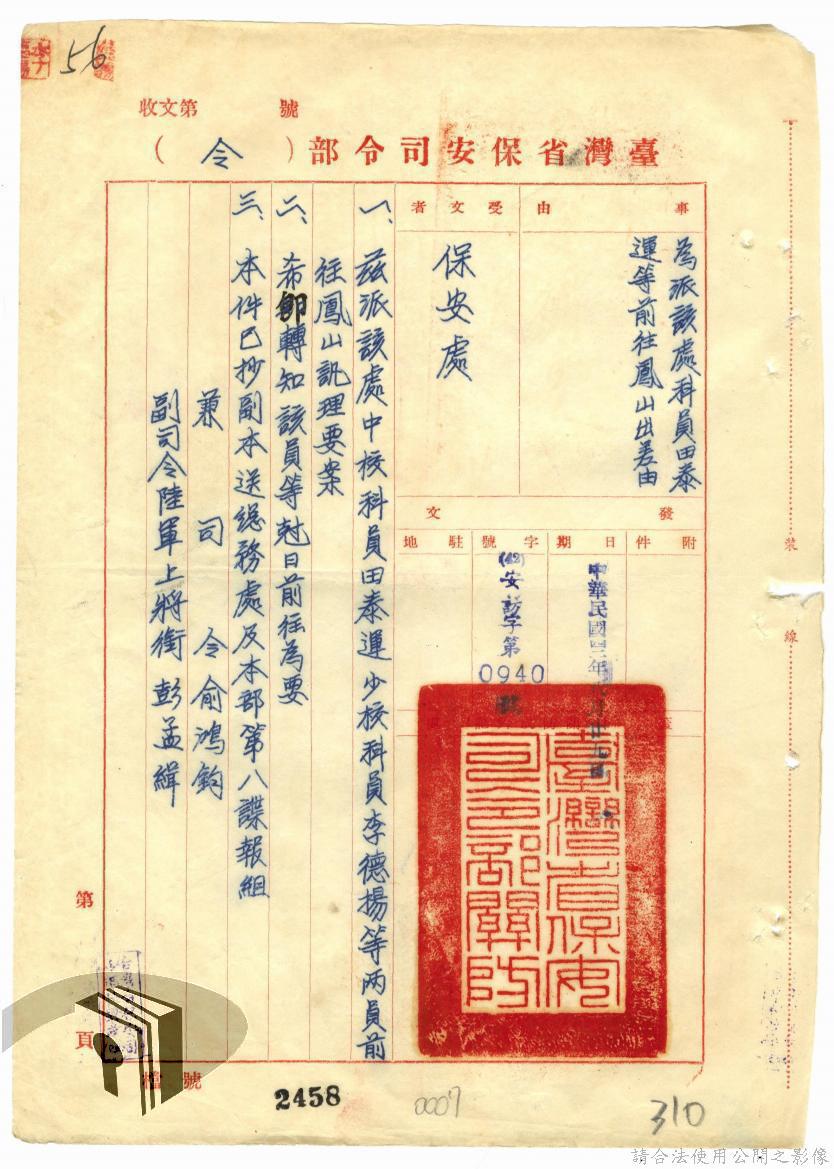 56
收文第 號
臺灣省保安司令部（令）
事由
為派該處科員田泰
運等前往鳳山出差由
受文者
保安處
發文
附件
日期
中華民國四二年 月廿九日
字號
(42)安訪字第
0940
號
駐地
一、茲派該處中校科員田泰運少校科員李德揚等兩員前
往鳳山訊理要案
二、希卽轉知該員等尅日前往為要
三、本件已抄副本送總務處及本部第八諜報組
兼司令俞鴻鈞
副司令陸軍上將銜彭孟緝
臺灣省保安司令部關防
裝
線
第
頁
檔號
2458
0007
310
請合法使用公開之影像